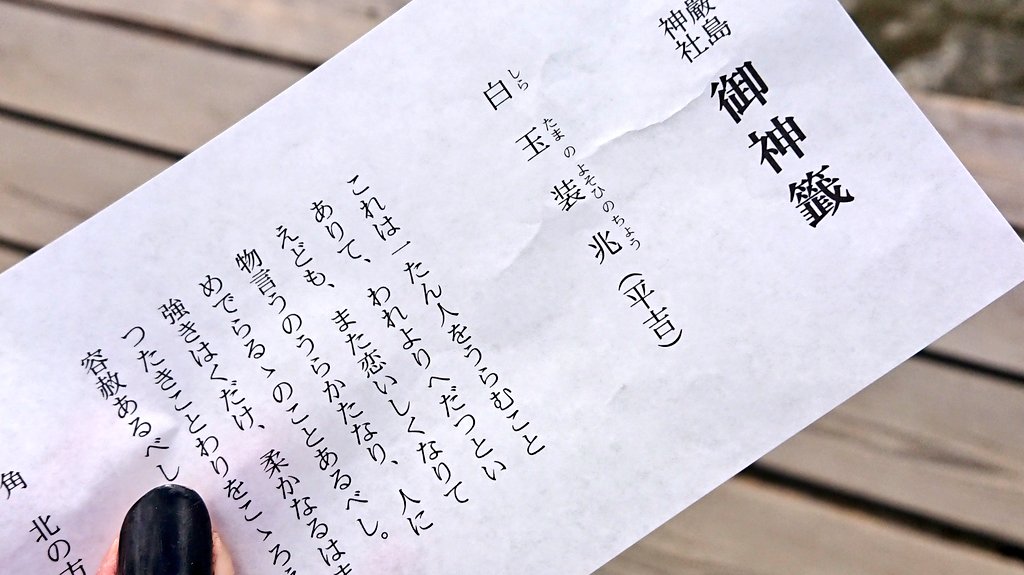 厳島
神社
御神籤
しら たまの よそひの ちょう
白玉装兆(平吉)
これは一たん人をうらむこと
ありて、われよりへだつとい
えども、また恋いしくなりて
物言うのうらかたなり、人に
めでらるゝのことあるべし。
強きはくだけ、柔かなるは
つたきことわりをこゝろ
容赦あるべし
角 北の